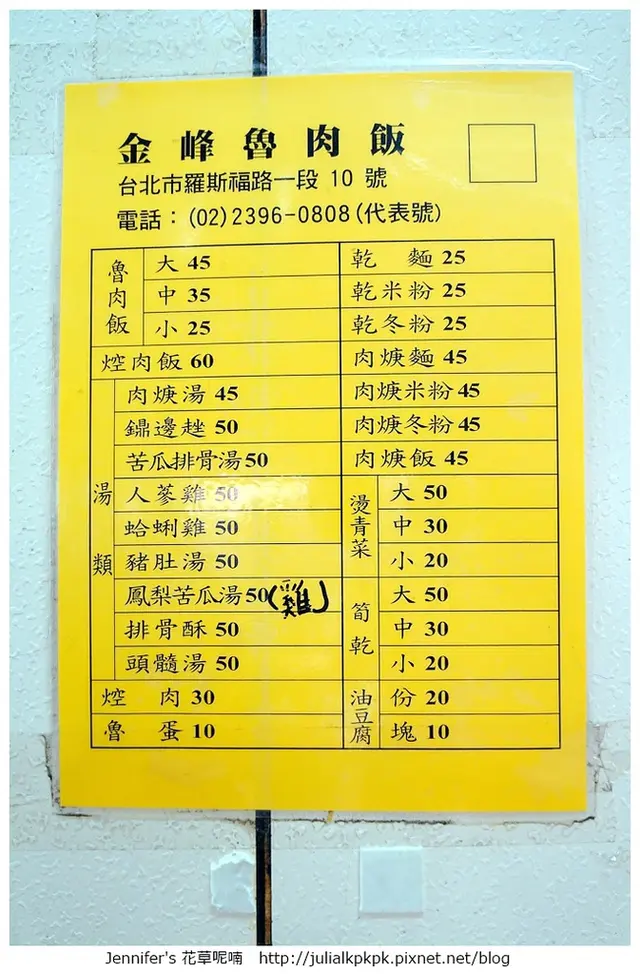 金峰魯肉飯
台北市羅斯福路一段 10 號
電話：(02)2396-0808(代表號)
魯肉飯
大 45
中 35
小 25
焢肉飯 60
湯類
肉焿湯 45
鼎邊趖 50
苦瓜排骨湯 50
人蔘雞 50
蛤蜊雞 50
豬肚湯 50
鳳梨苦瓜湯 50 (雞)
排骨酥 50
頭髓湯 50
焢 肉 30
魯 蛋 10
乾 麵 25
乾米粉 25
乾冬粉 25
肉焿麵 45
肉焿米粉 45
肉焿冬粉 45
肉焿飯 45
燙青菜
大 50
中 30
小 20
筍乾
大 50
中 30
小 20
油豆腐
份 20
塊 10
Jennifer's 花草呢喃 http://julialkpkpk.pixnet.net/blog